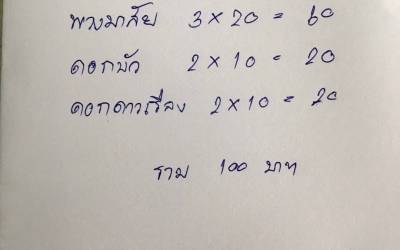 พวงมาลัย 3 × 20 = 60
ดอกบัว 2 × 10 = 20
ดอกดาวเรือง 2 × 10 = 20
รวม 100 บาท